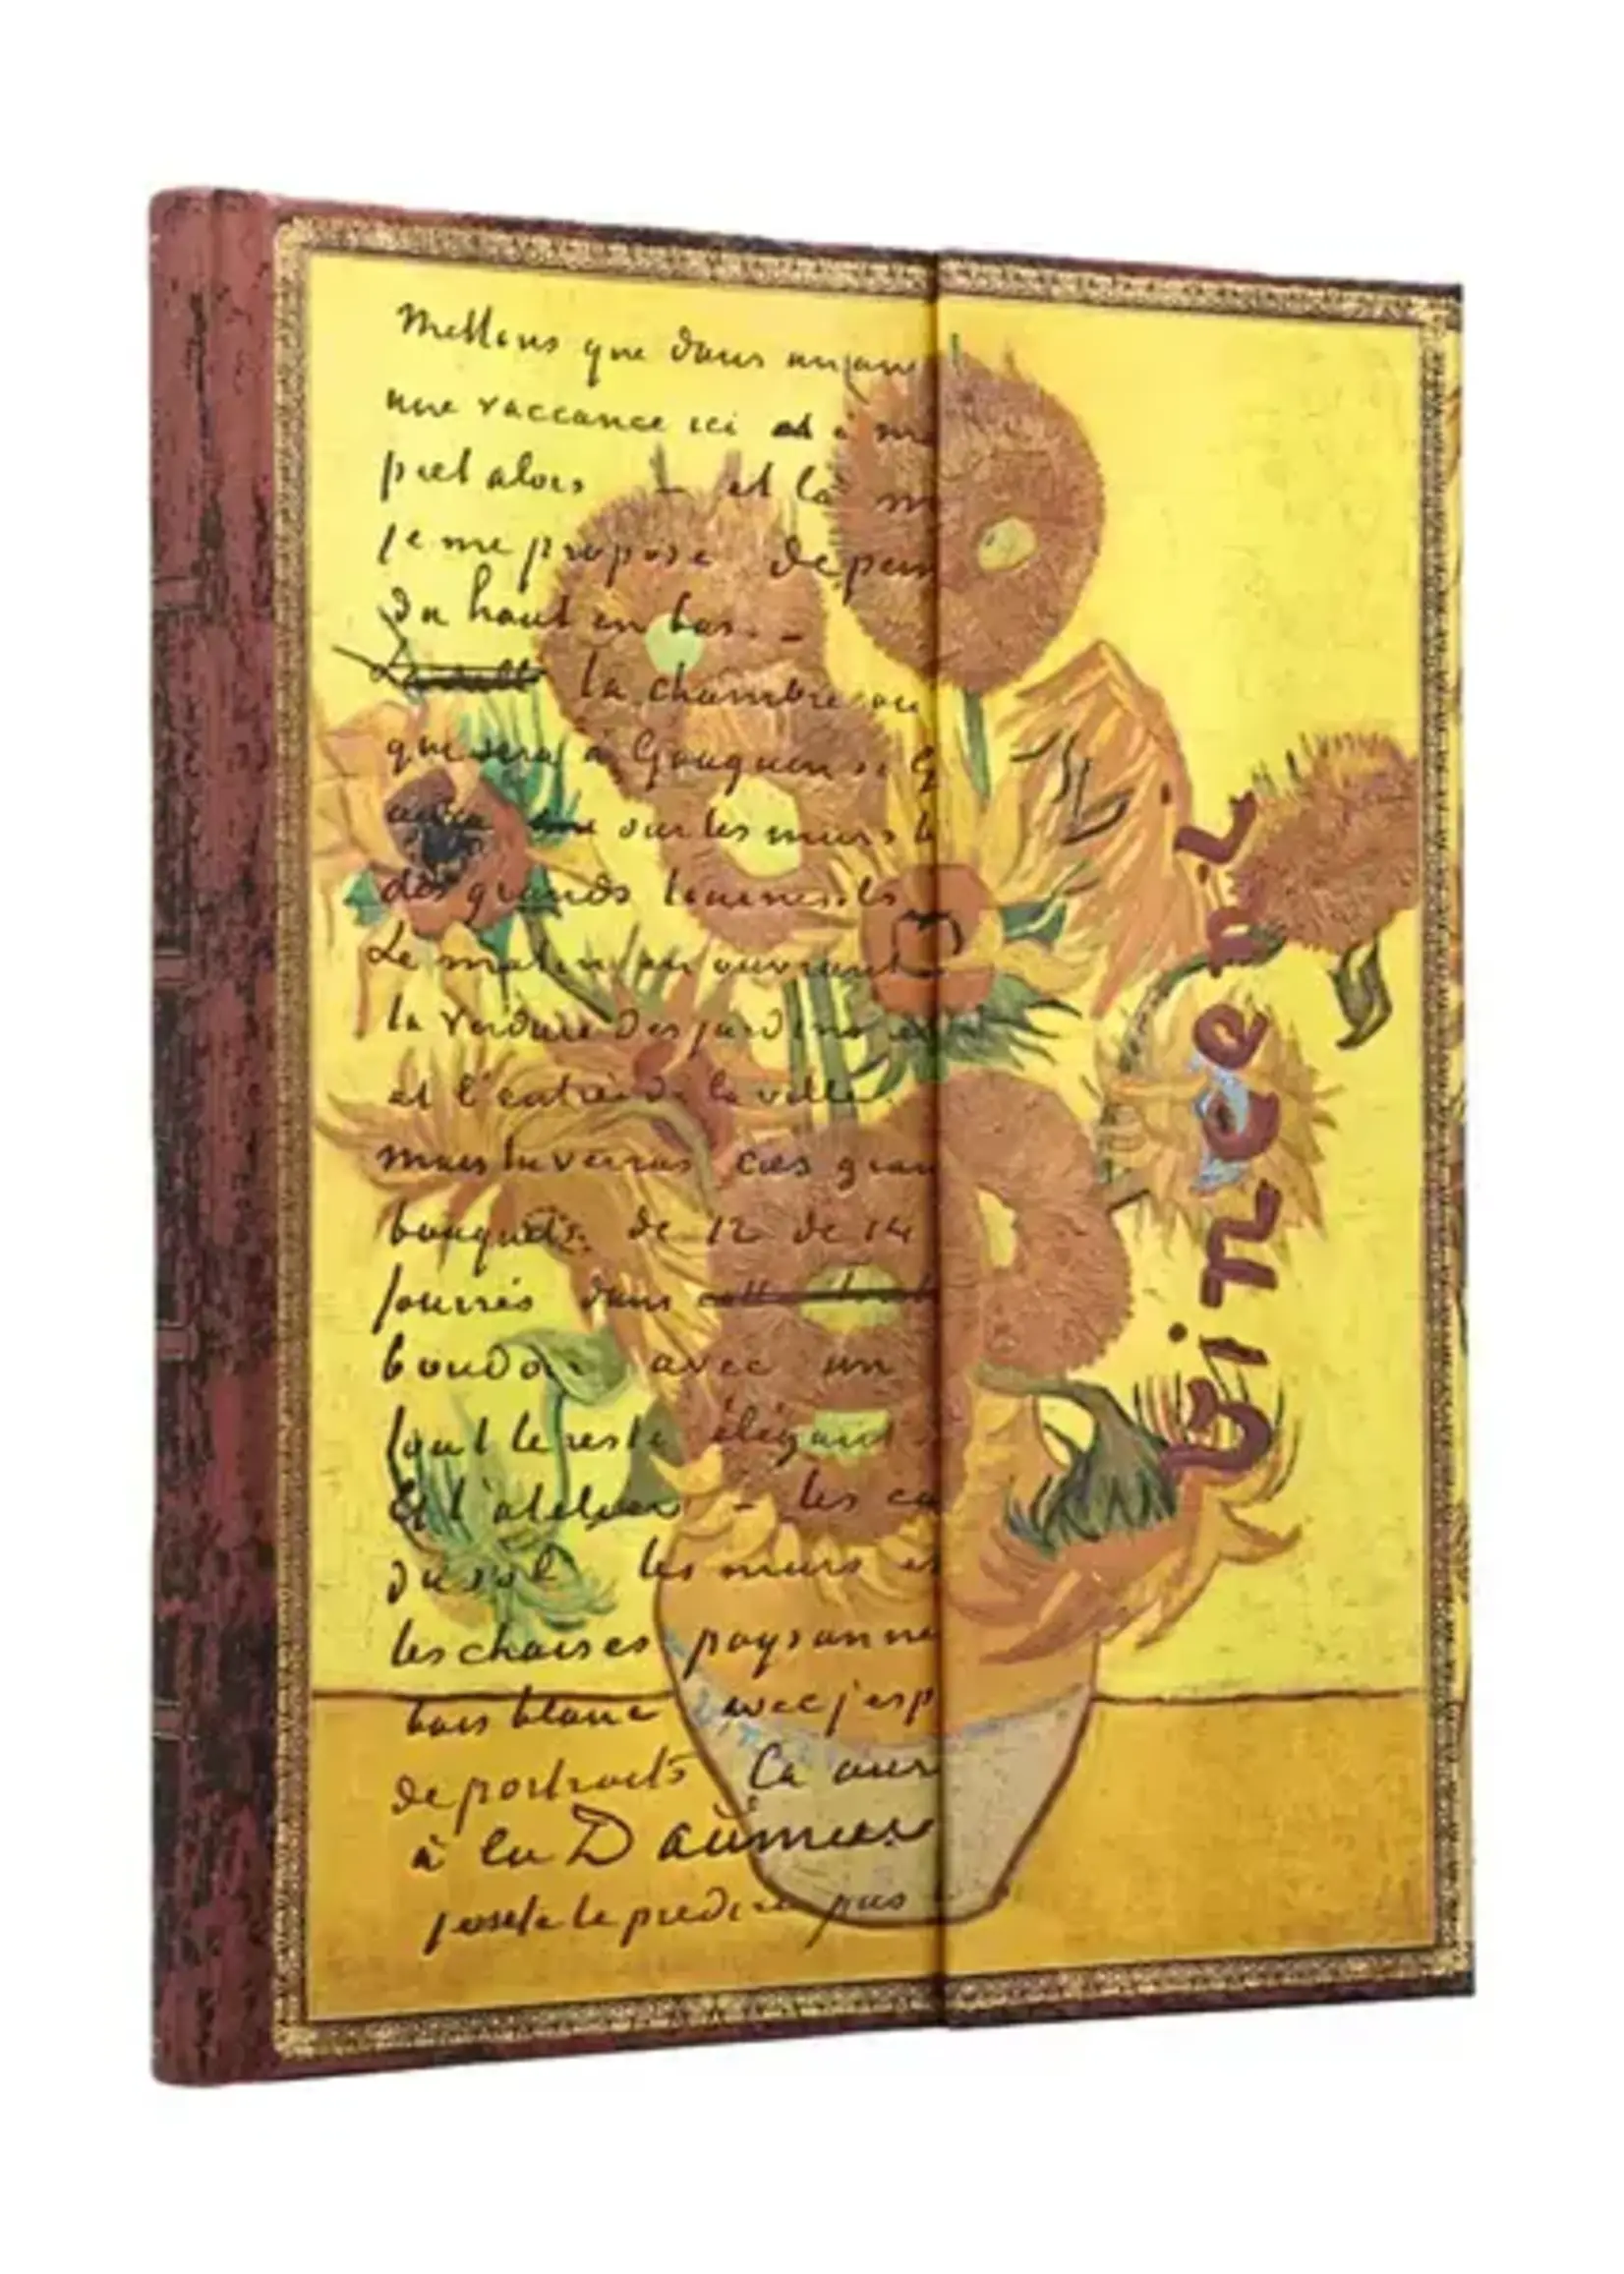 Mettons que dans un an
une vaccance ici et à
pret alors – et là
je me propose de pein
du haut en bas. –
la chambre ou
que sera à Gauguin si G
aura sur les murs
des grands tournesols
Le matin en ouvrant
la verdure des jardins
et l'entrée de la ville
mais tu verras ces gran
bouquets de 12 de 14
fourrés dans
boudoir avec un
tout le reste élégant
Et l'atelier – les ca
du sol les murs
les chaises paysanne
bois blanc avec j'esp
de portraits Ca aur
à la Daumier
j'ose le predire pas
Vincent